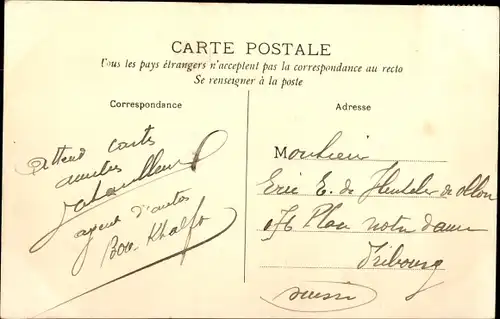 CARTE POSTALE
Tous les pays étrangers n'acceptent pas la correspondance au recto
Se renseigner à la poste
Correspondance
Adresse
Attend carte
agent d'autos
Bou-Khalfa
Monsieur
Eric E. de
176 Place notre dame
Fribourg
Suisse